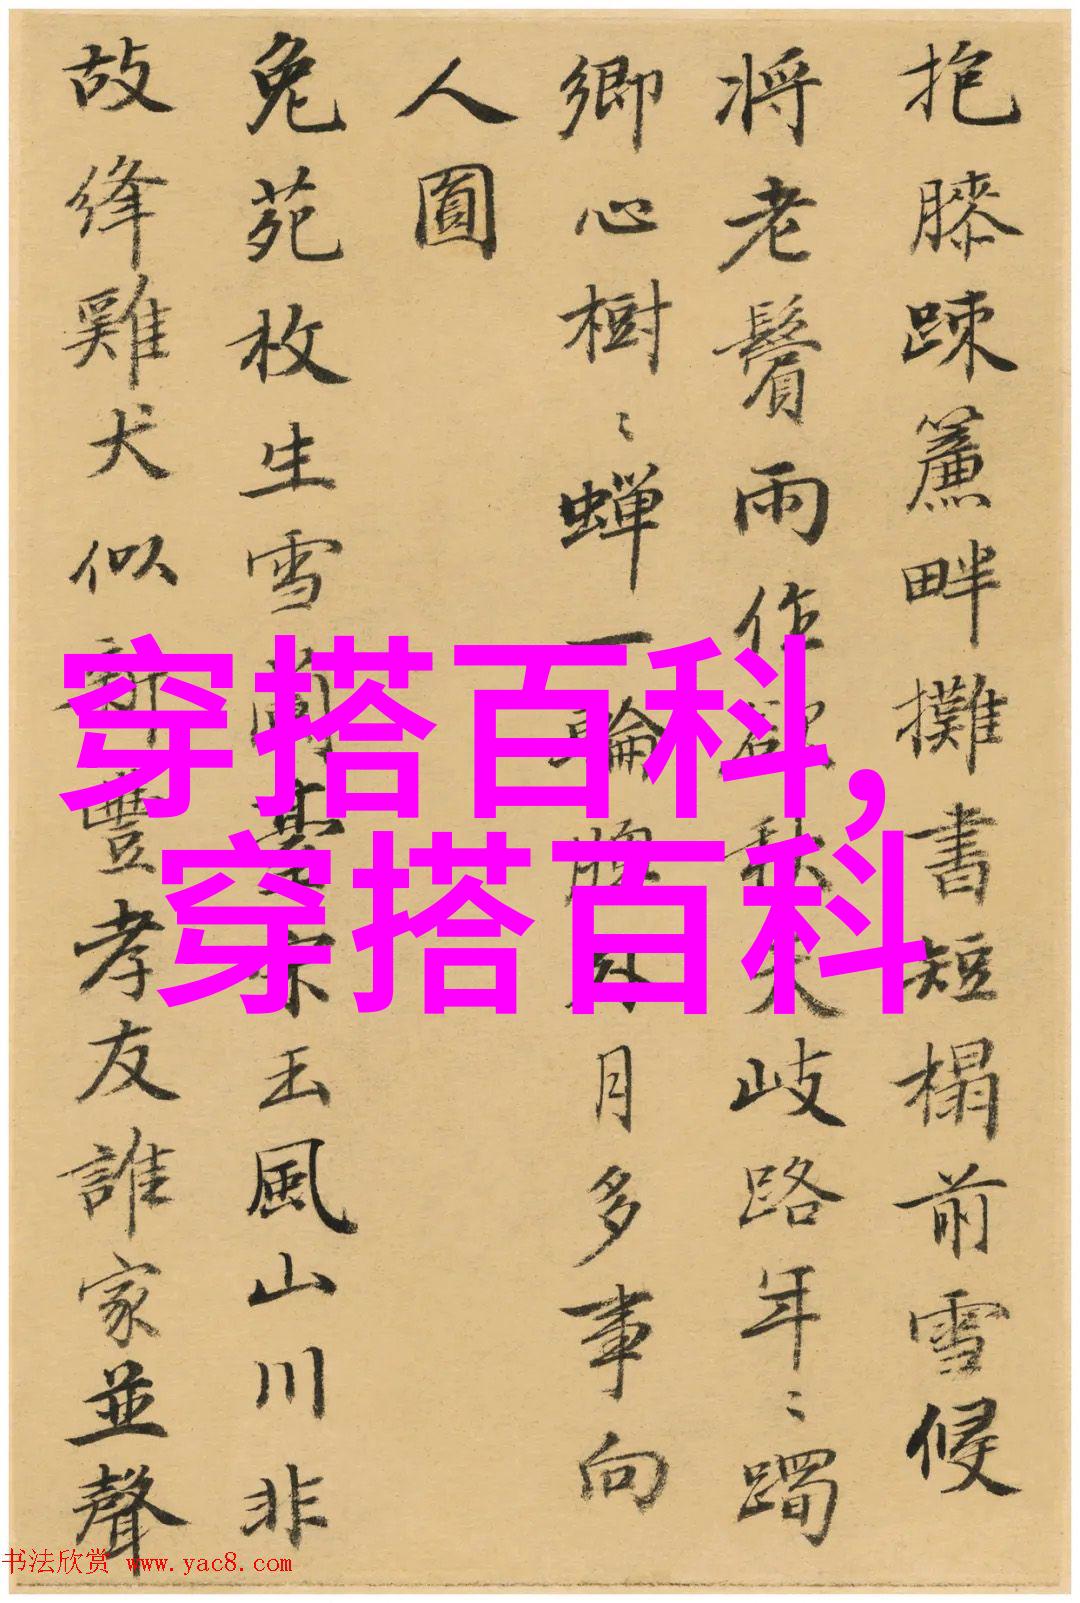 抱膝疎簾畔攤書短榻前雪侵
将老鬢雨作欲秋天岐路年〻蠲
鄉心樹〻蟬一輪牕月多事向
人圓
兔苑枚生雪蘭臺宋玉風山川非
故絳雞犬似新豐孝友誰家並聲
穿搭百科,
穿搭百科
书法欣赏 www.yac8.com